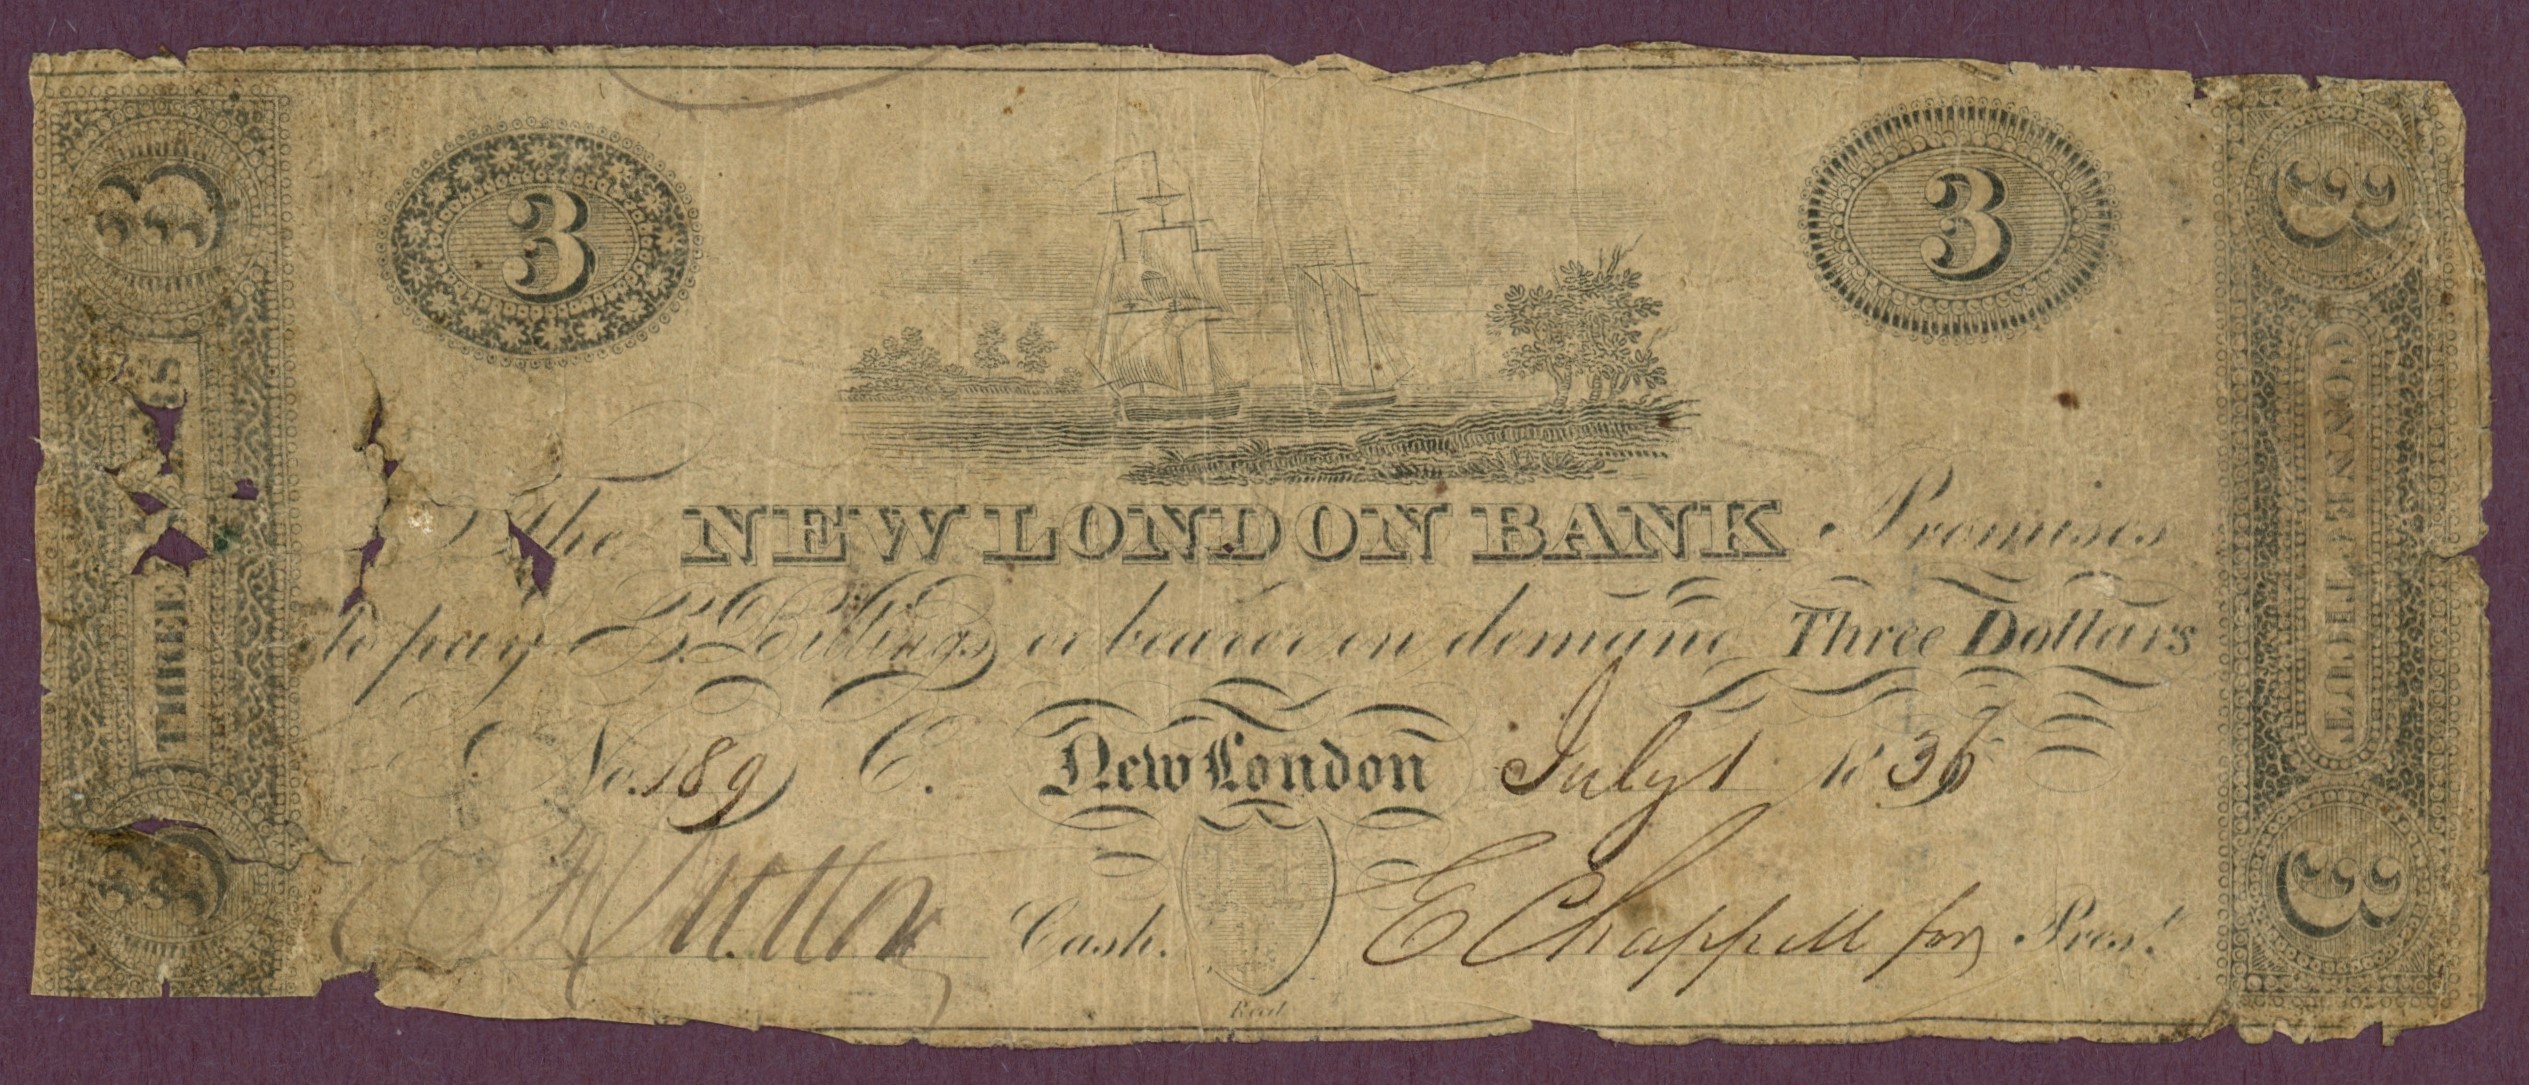 3
3
3
3
The NEW LONDON BANK Promises
to pay E. Billings or bearer on demand Three Dollars
No. 189 C. New London July 1 1836
Cash. E Chappell for Pres.t
3
3
THREE
CONNETICUT
Reed